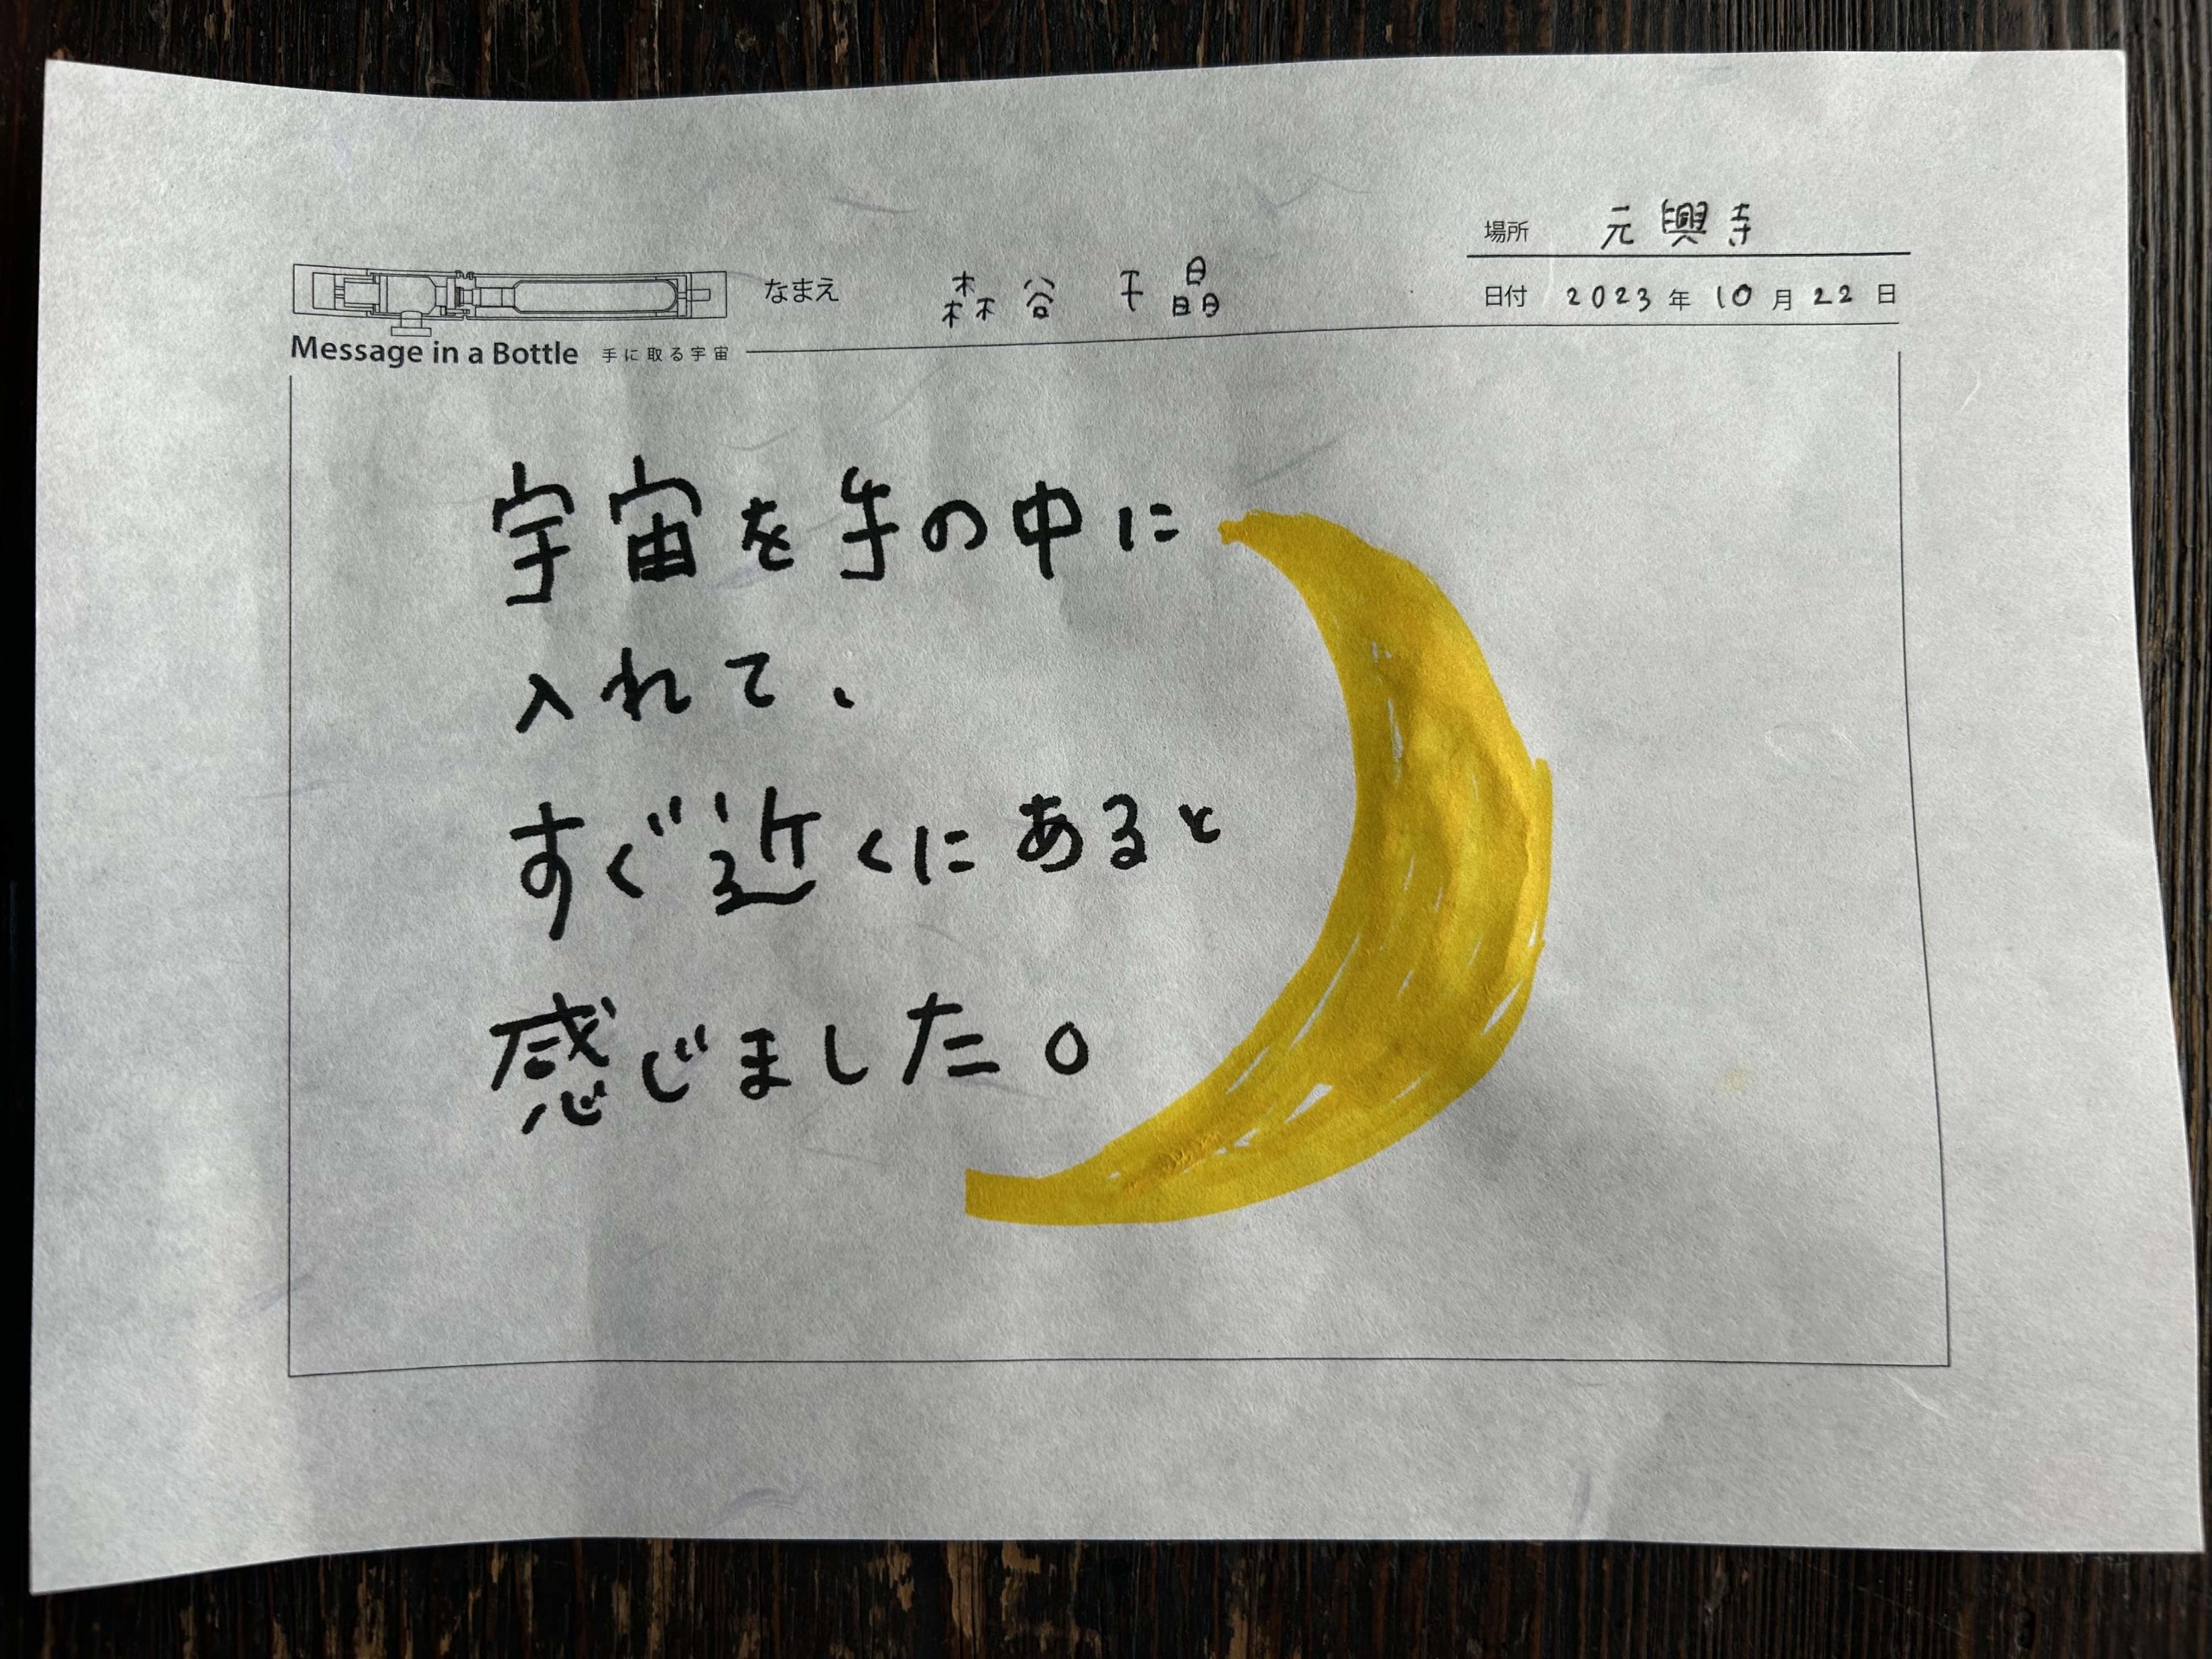 場所 元興寺
なまえ 森谷 千晶
日付 2023年10月22日
Message in a Bottle 手に取る宇宙
宇宙を手の中に
入れて、
すぐ近くにあると
感じました。